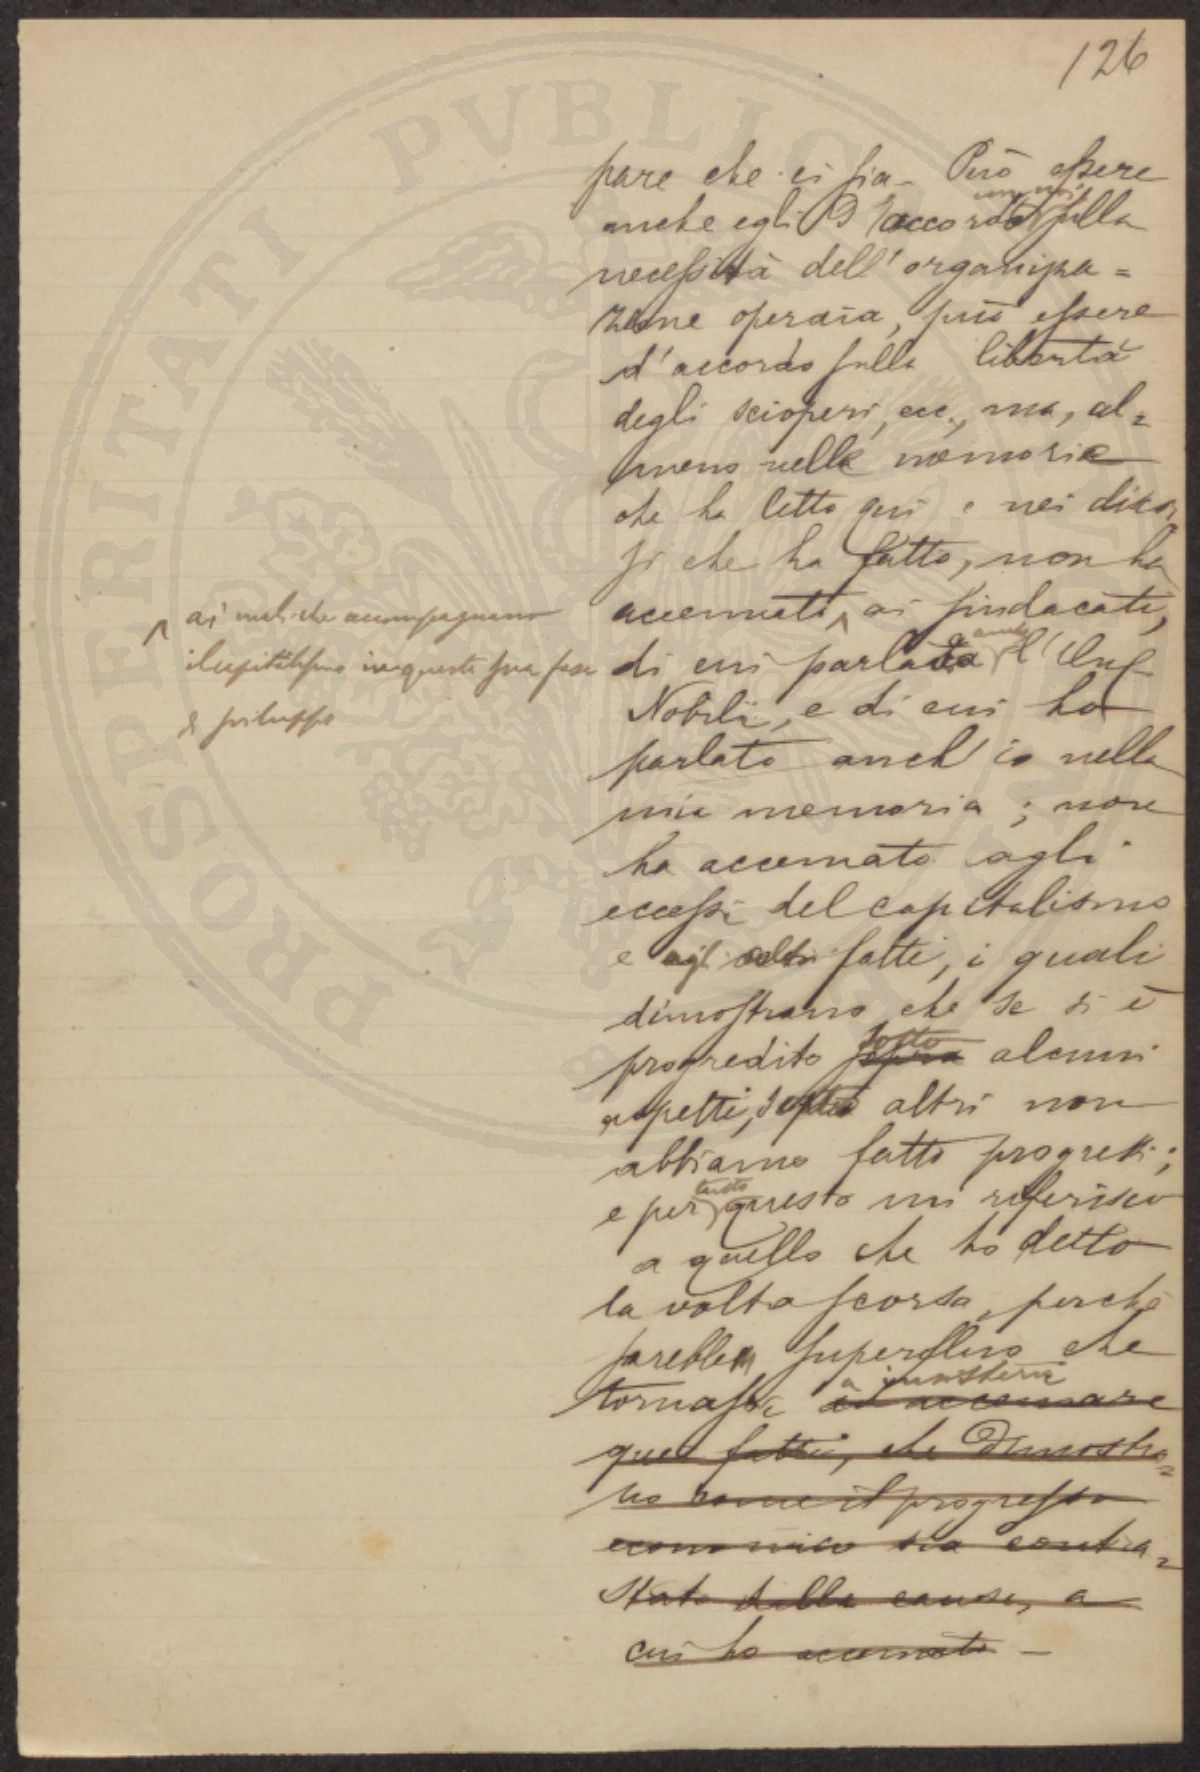 126
pare che ci sia. Può essere
anche egli d'accordo con noi sulla
necessità dell'organizza=
zione operaia, può essere
d'accordo sulla libertà
degli scioperi, ecc., ma, al=
meno nella memoria
che ha letto qui e nei discor
si che ha fatto, non ha
accennato ^ ai sindacati,
^ ai mali che accompagnano
il capitalismo in questa sua fase
di sviluppo
di cui parlava anche l'On.
Nobili, e di cui ho
parlato anch'io nella
mia memoria; non
ha accennato agli
eccessi del capitalismo
e agli altri fatti, i quali
dimostrano che se si è
progredito sopra sotto alcuni
aspetti, sotto altri non
abbiamo fatto progressi;
e per tutto questo mi riferisco
a quello che ho detto
la volta scorsa, perché
sarebbe superfluo che
tornassi a insistervi ad accennare
quei fatti, che dimostra=
no come il progresso
economico sia contra=
stato dalle cause, a
cui ho accennato -
PROSPERITATI PVBLIC